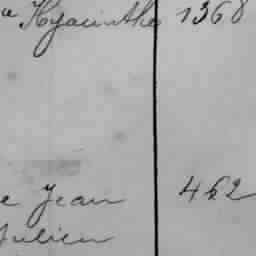 Hyacinthe 1368
e Jean 462
Julien